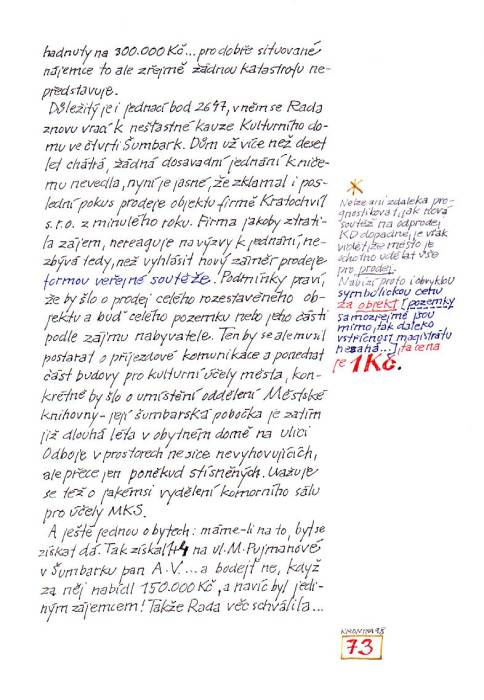 hadnuty na 300.000 Kč... pro dobře situované
nájemce to ale zřejmě žádnou katastrofu ne-
představuje.
Důležitý je i jednací bod 2647, v něm se Rada
znovu vrací k nešťastné kauze Kulturního do-
mu ve čtvrti Šumbark. Dům už více než deset
let chátrá, žádná dosavadní jednání k niče-
mu nevedla, nyní je jasné, že zklamal i pos-
lední pokus prodeje objektu firmě Kratochvíl
s.r.o. z minulého roku. Firma jakoby ztrati-
la zájem, nereaguje na výzvy k jednání, ne-
zbývá tedy, než vyhlásit nový záměr prodeje
formou veřejné soutěže. Podmínky praví,
že by šlo o prodej celého rozestavěného ob-
jektu a buď celého pozemku nebo jeho části
podle zájmu nabyvatele. Ten by se ale musil
postarat o příjezdové komunikace a ponechat
část budovy pro kulturní účely města, kon-
krétně by šlo o umístění oddělení Městské
knihovny - její šumbarská pobočka je zatím
již dlouhá léta v obytném domě na ulici
Odboje v prostorech ne sice nevyhovujících,
ale přece jen poněkud stísněných. Uvažuje
se též o jakémsi vydělení komorního sálu
pro účely MKS.
A ještě jednou o bytech: máme-li na to, byt se
získat dá. Tak získal 1+4 na ul. M. Pujmanové
v Šumbarku pan A.V. ... a bodejť ne, když
za něj nabídl 150.000 Kč, a navíc byl jedi-
ným zájemcem! Takže Rada věc schválila...
Nelze ani zdaleka pro-
gnostikovat, jak nová
soutěž na odprodej
KD dopadne, je však
vidět, že město je
ochotno udělat vše
pro prodej.
Nabízí proto i obvyklou
symbolickou cenu
za objekt [pozemky
samozřejmě jsou
mimo, tak daleko
vstřícnost magistrátu
nesahá...], ta cena
je 1 Kč.
KRONIKA 98
73